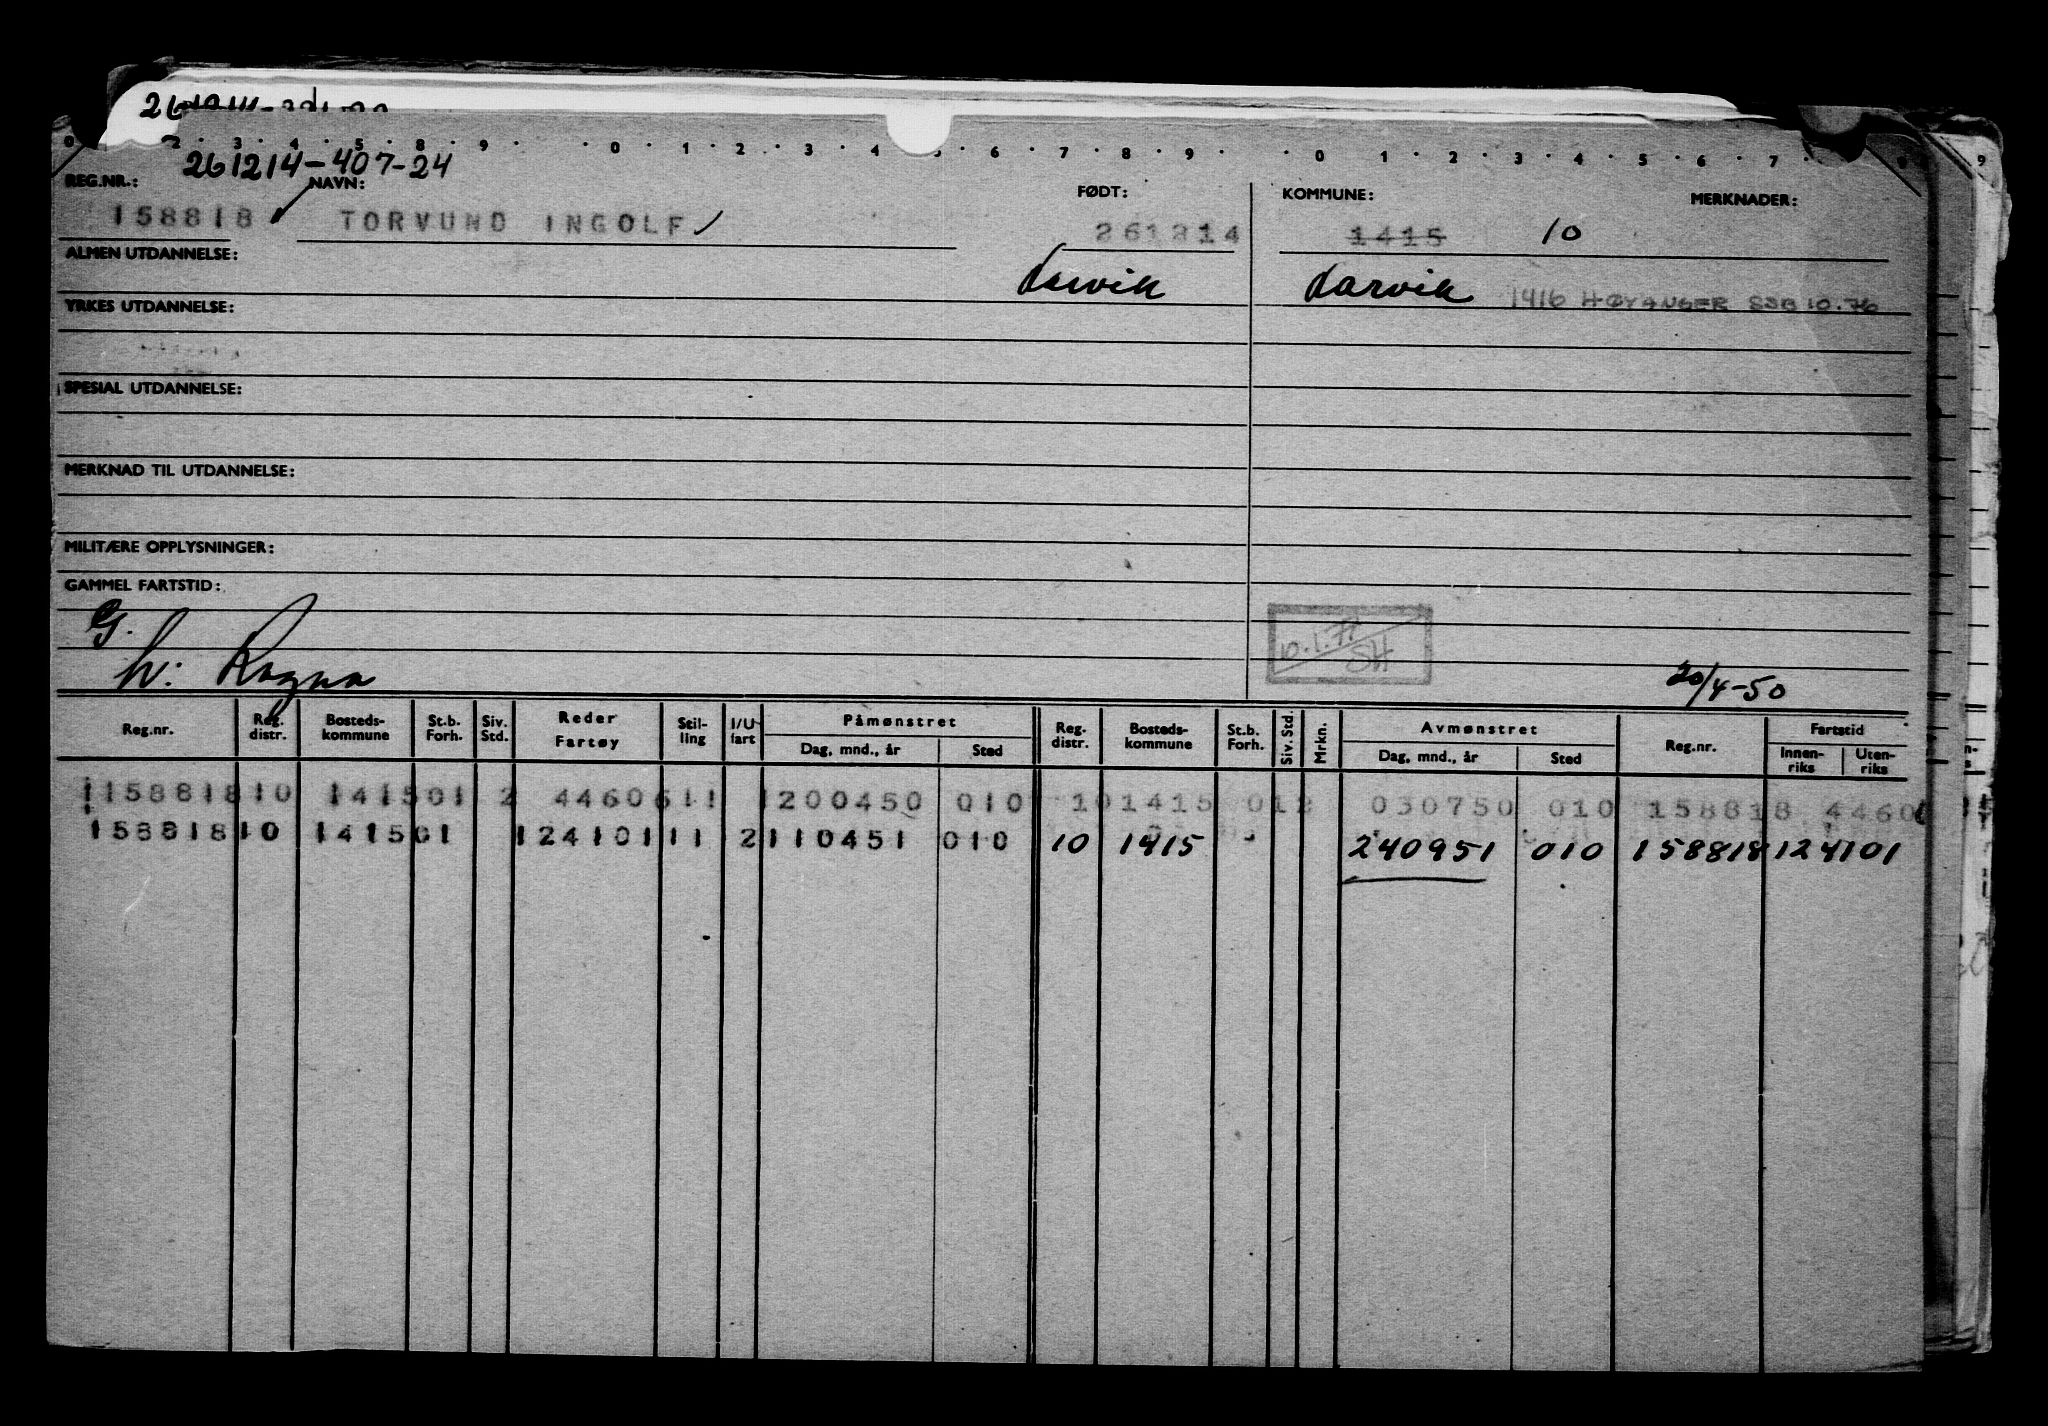 0 2 · 3 · 4 · 5 · 8 · 9 · · 0 · 1 · 2 · 3 · 4 · 5 · 6 · 7 · 8 · 9 · · 0 · 1 · 2 · 3 · 4 · 5 · 6 · 7 · 9
261214-407-24
REG.NR.: NAVN: FØDT: KOMMUNE: MERKNADER:
158818 TORVUND INGOLF 261214 1415 10
ALMEN UTDANNELSE:
Larvik Larvik 1416 HØYANGER SSB 10.76
YRKES UTDANNELSE:
SPESIAL UTDANNELSE:
MERKNAD TIL UTDANNELSE:
MILITÆRE OPPLYSNINGER:
GAMMEL FARTSTID:
G.
h: Ragna
10.1.77 SH
20/4-50
Reg.nr. Reg. distr. Bosteds-kommune St.b. Forh. Siv. Std. Reder Fartøy Stil-ling I/U fart Påmønstret Reg. distr. Bosteds-kommune St.b. Forh. Siv. Std. Mrkn. Avmønstret Reg.nr. Fartstid
Dag, mnd., år Sted Dag, mnd., år Sted Innen-riks Uten-riks
115881810 141501 2 4460611 1200450 010 101415 012 030750 010 158818 4460
15881810 141501 12410111 2110451 010 10 1415 240951 010 158818 124101